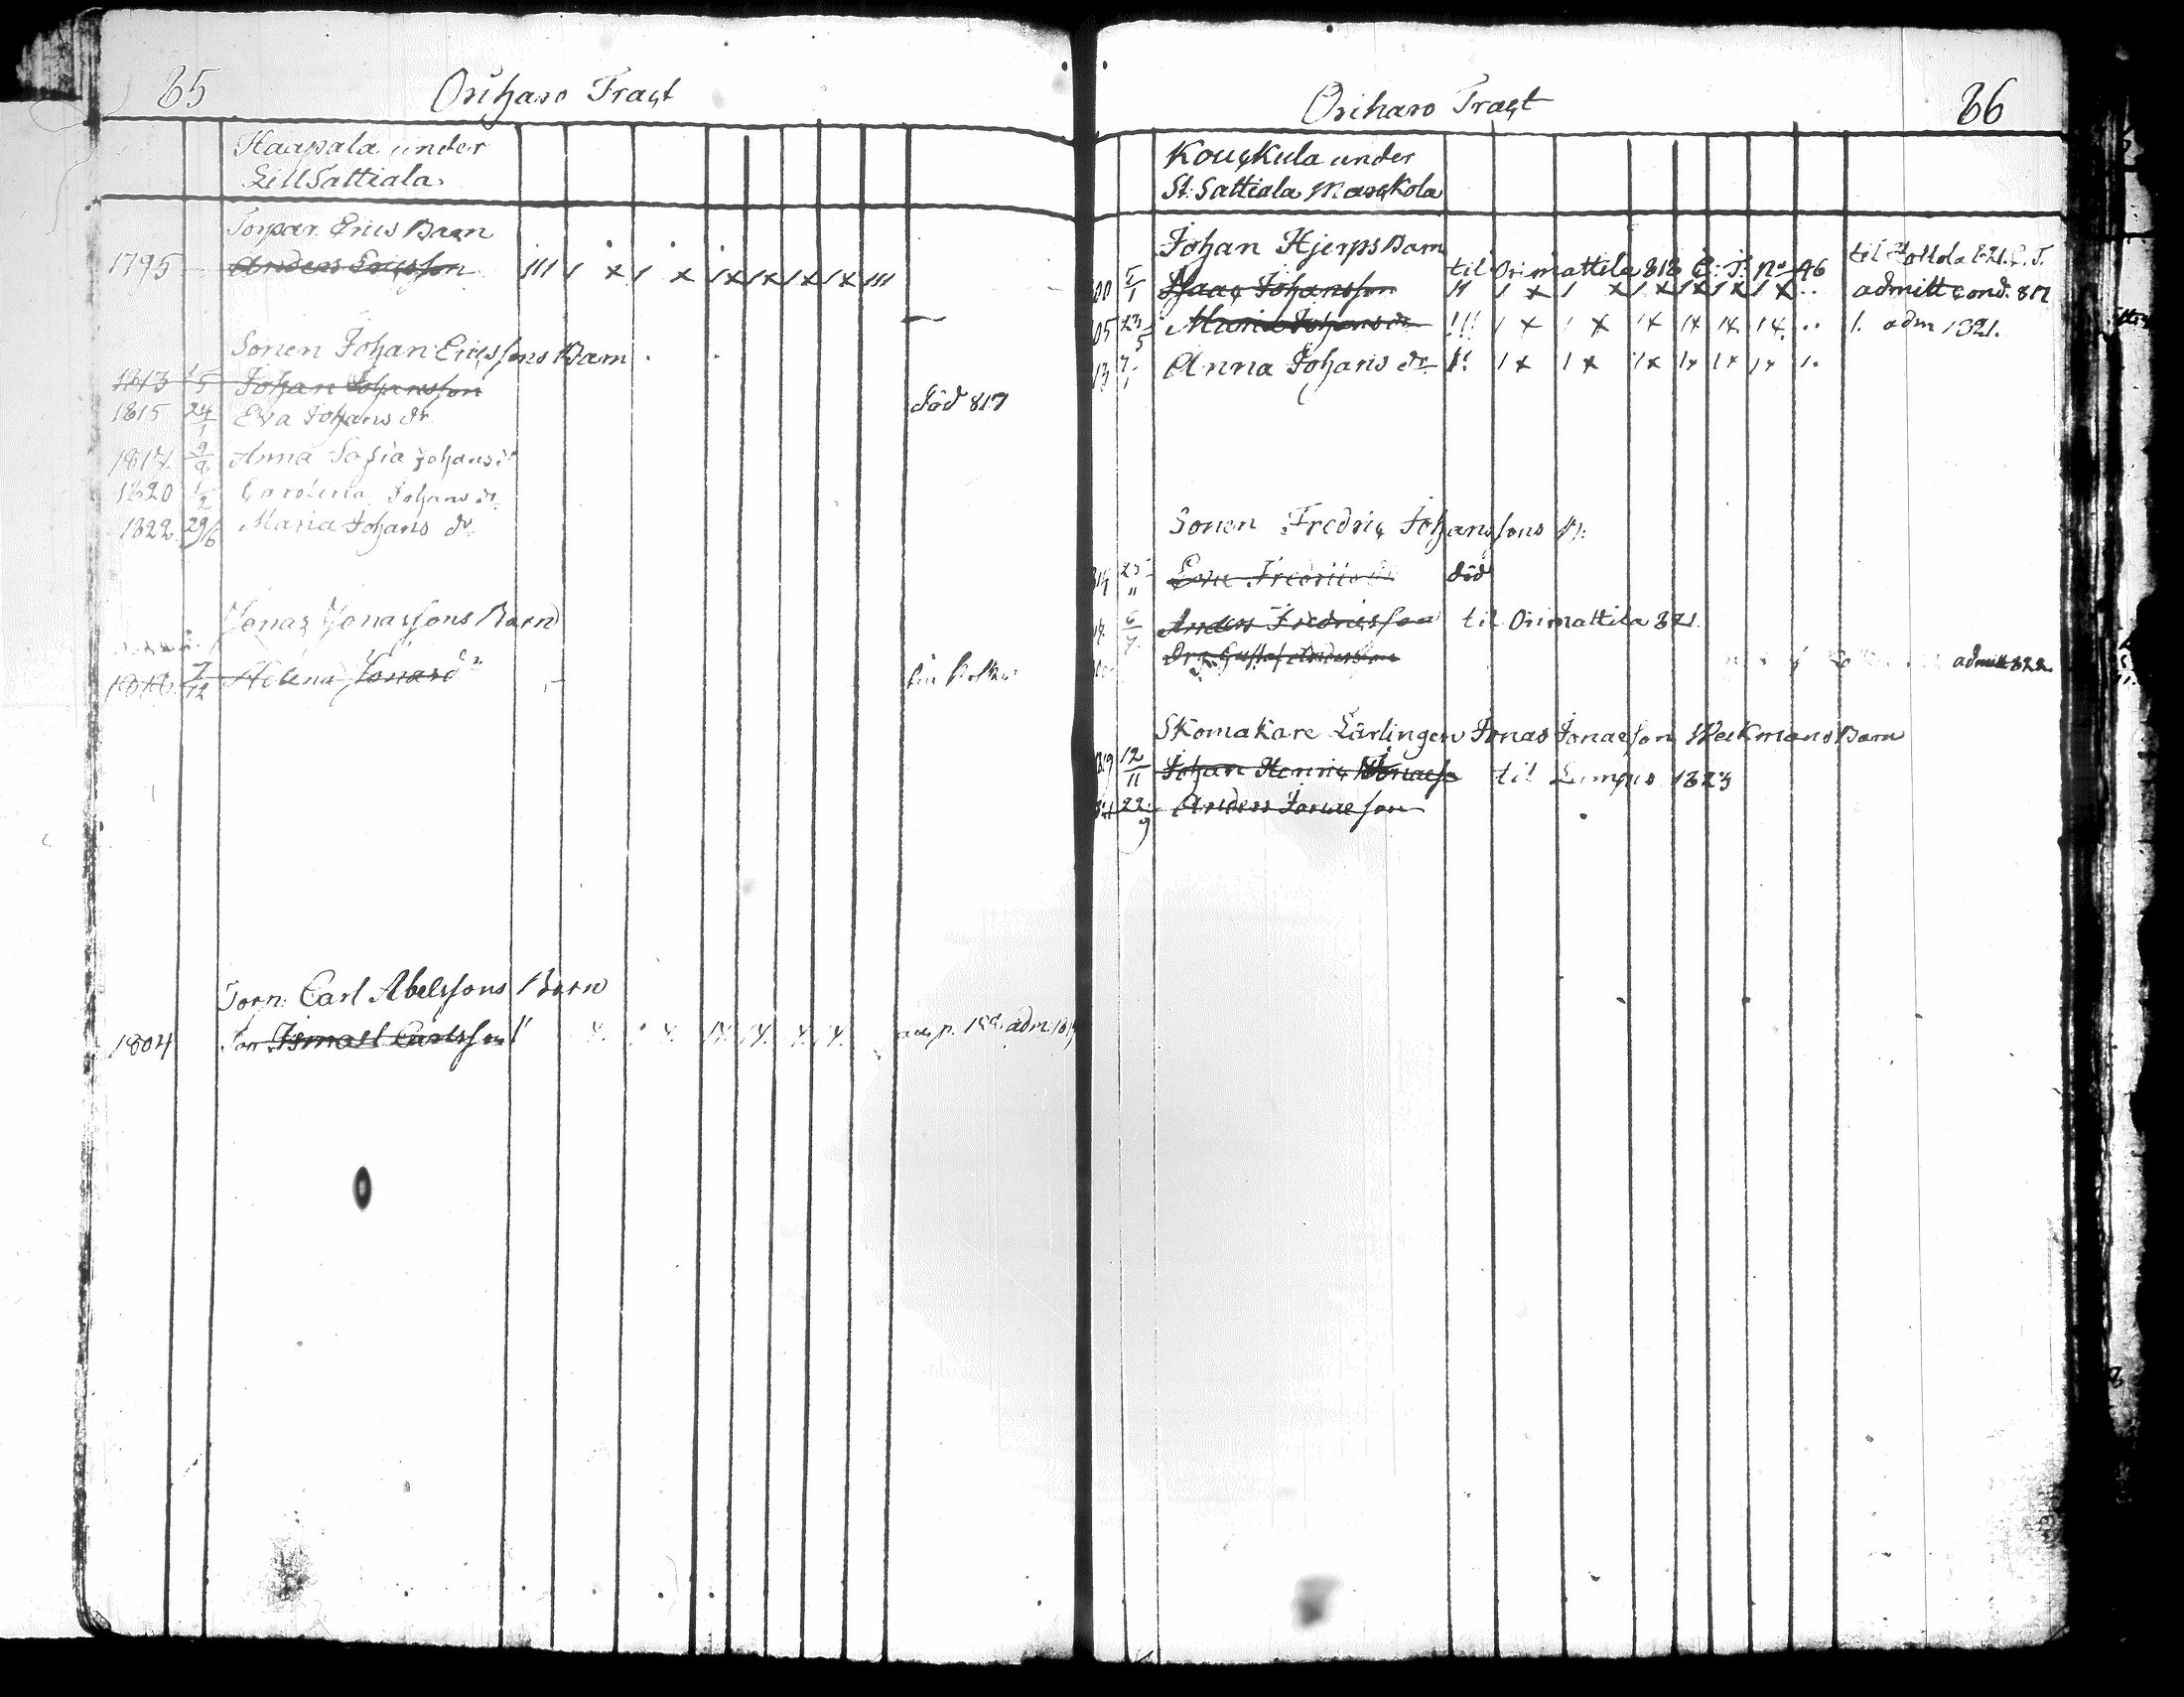 85
Orihavo Tract
Haapala under
Lill Sattiala
Torpar Erics Barn
1795 Anders Ericsson
Sonen Johan Ericssons Barn
1813 Johan Johansson
1815 24/1 Eva Johans dr död 817
1817 9/8 Anna Sofia Johans dr
1820 1/2 Carolina Johans dr
1822 29/6 Maria Johans dr
Jonas Jonassons Barn
7/12 Helena Jonasdr
Torp: Carl Abelssons Barn
1804 Son Ismael Carlsson adm:
86
Orihavo Tract
Kouckula under
St: Sattiala Marckola
Johan Hjerps Barn
til Orimattila 818 til Hollola 821.
5/1 Isaac Johansson admitt cond. 817
05 23/5 Maria Johans dr 1. adm 1821.
13 7/1 Anna Johans dr
Sonen Fredric Johanssons B:
25 Eva Fredrics dr död
6/7 Anders Fredricsson til Orimattila 821
Drg: Gustaf Andersson admitt 822
Skomakare Lärlingen Jonas Jonasson Weckmans Barn
1819 12/11 Johan Henric Jonass: til Lampis 1823
22/9 Anders Jonasson